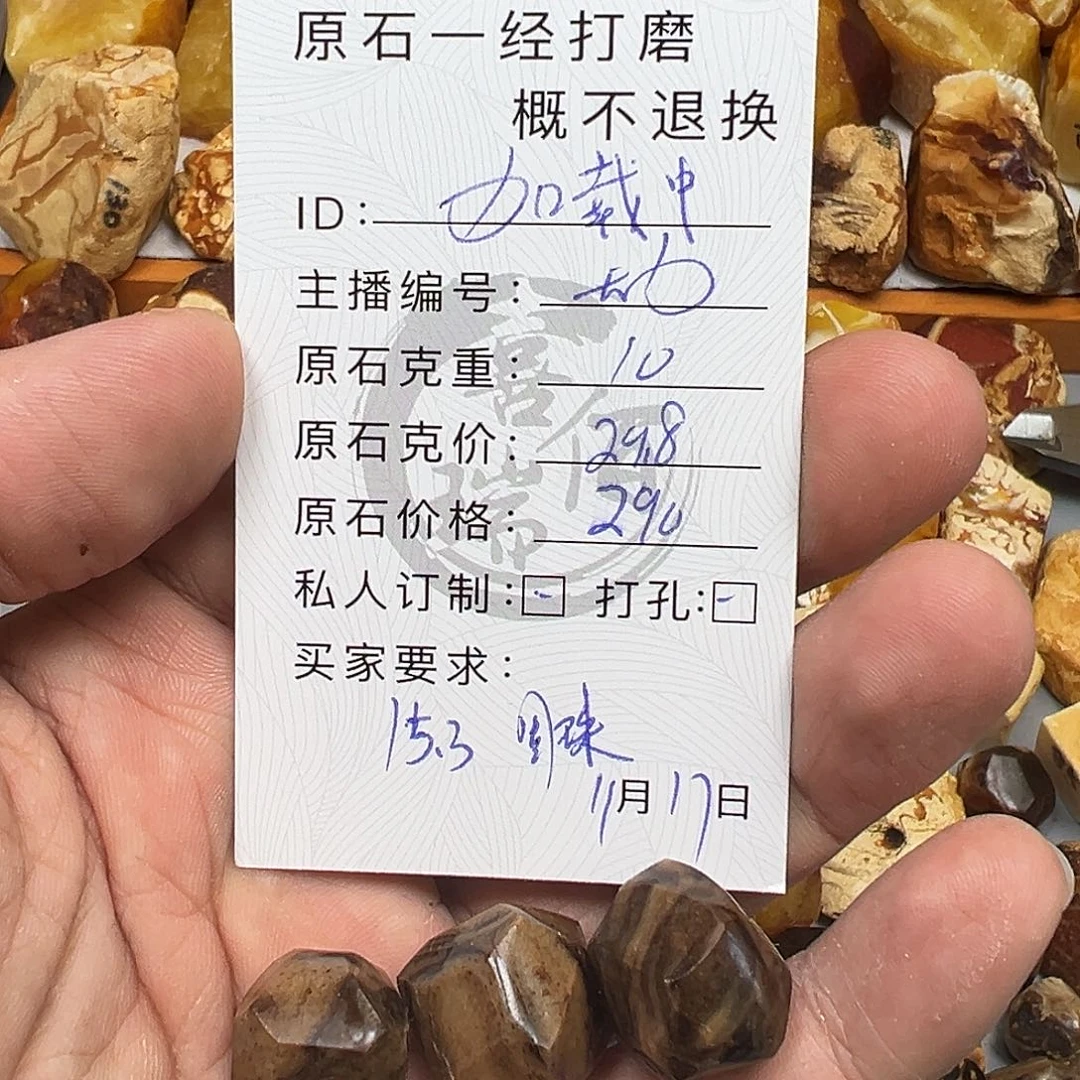 原石一经打磨
概不退换
ID: 加载中
主播编号:
原石克重: 10
原石克价: 29.8
原石价格: 290
私人订制:☐ 打孔:☐
买家要求:
15.3 圆珠
11月17日
喜佰瑞
130